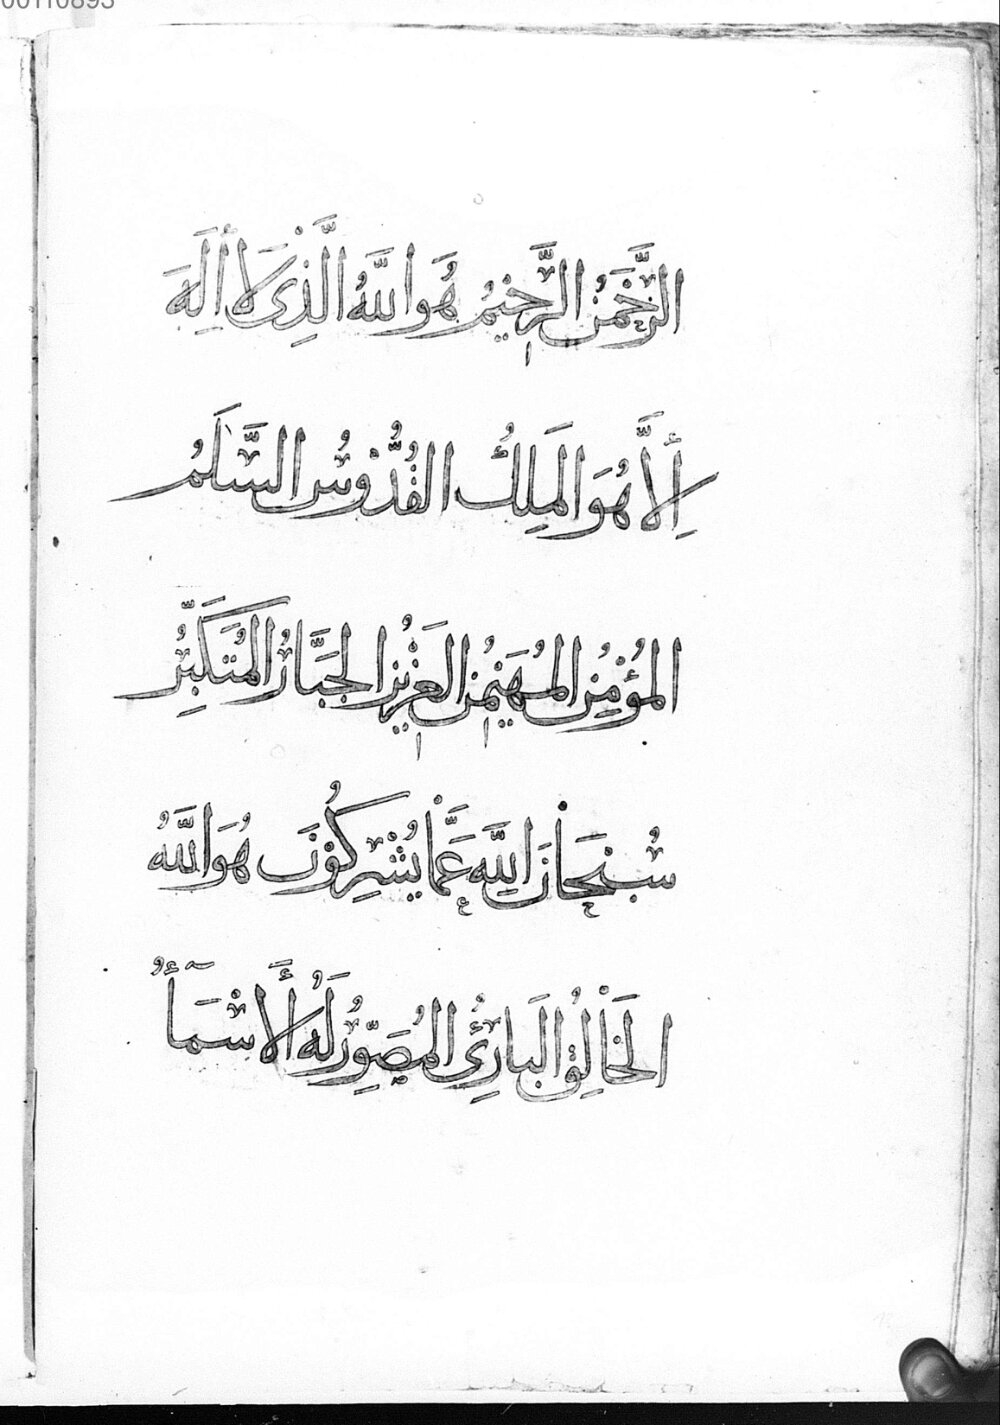 00110893
الرَّحْمَنُ الرَّحِيمُ هُوَ اللَّهُ الَّذِى لَا إِلَهَ
إِلَّا هُوَ الْمَلِكُ الْقُدُّوسُ السَّلَمُ
الْمُؤْمِنُ الْمُهَيْمِنُ الْعَزِيزُ الْجَبَّارُ الْمُتَكَبِّرُ
سُبْحَانَ اللَّهِ عَمَّا يُشْرِكُونَ هُوَ اللَّهُ
الْخَالِقُ الْبَارِئُ الْمُصَوِّرُ لَهُ الْأَسْمَآءُ